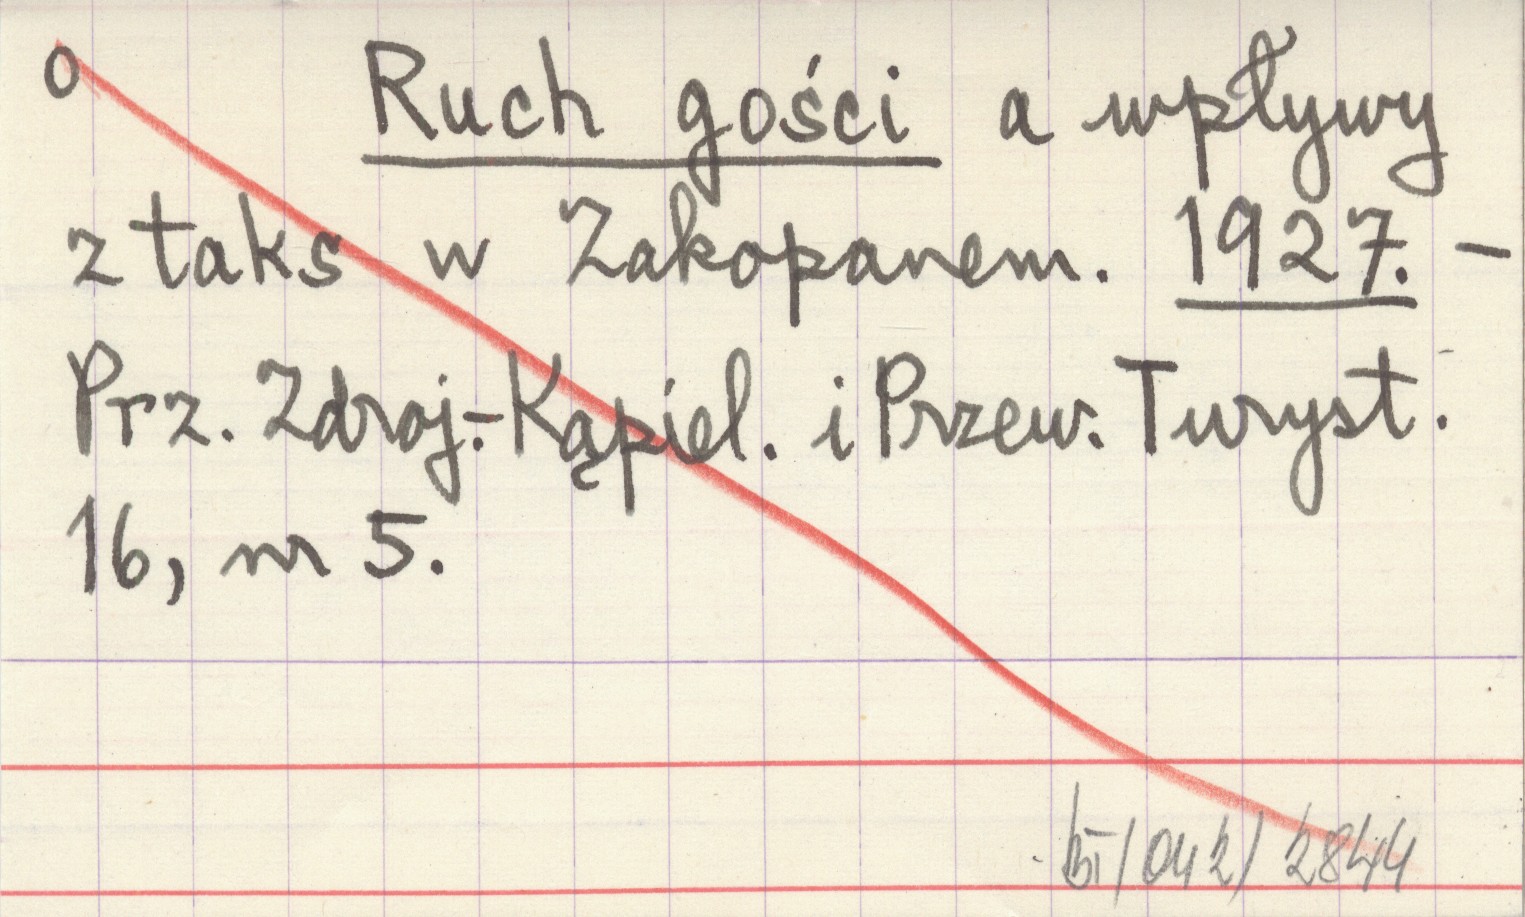 o Ruch gości a wpływy
z taks w Zakopanem. 1927. -
Prz. Zdroj.-Kąpiel. i Przew. Turyst.
16, nr 5.
/042/ 2844